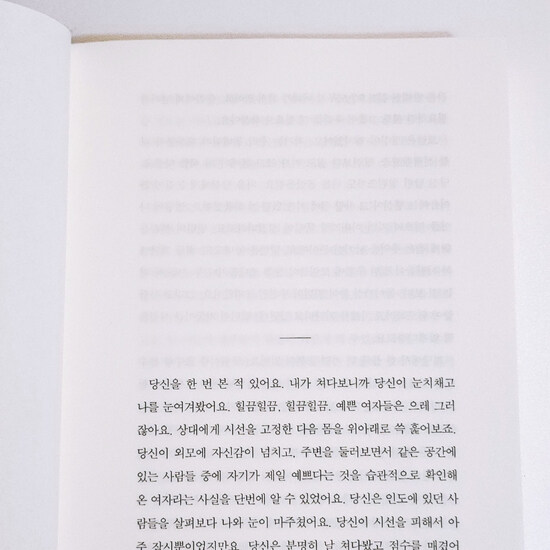 당신을 한 번 본 적 있어요. 내가 쳐다보니까 당신이 눈치채고
나를 눈여겨봤어요. 힐끔힐끔, 힐끔힐끔. 예쁜 여자들은 으레 그러
잖아요. 상대에게 시선을 고정한 다음 몸을 위아래로 쓱 훑어보죠.
당신이 외모에 자신감이 넘치고, 주변을 둘러보면서 같은 공간에
있는 사람들 중에 자기가 제일 예쁘다는 것을 습관적으로 확인해
온 여자라는 사실을 단번에 알 수 있었어요. 당신은 인도에 있던 사
람들을 살펴보다 나와 눈이 마주쳤어요. 당신이 시선을 피해서 아
주 잠시뿐이었지만요. 당신은 분명히 날 쳐다봤고 점수를 매겼어